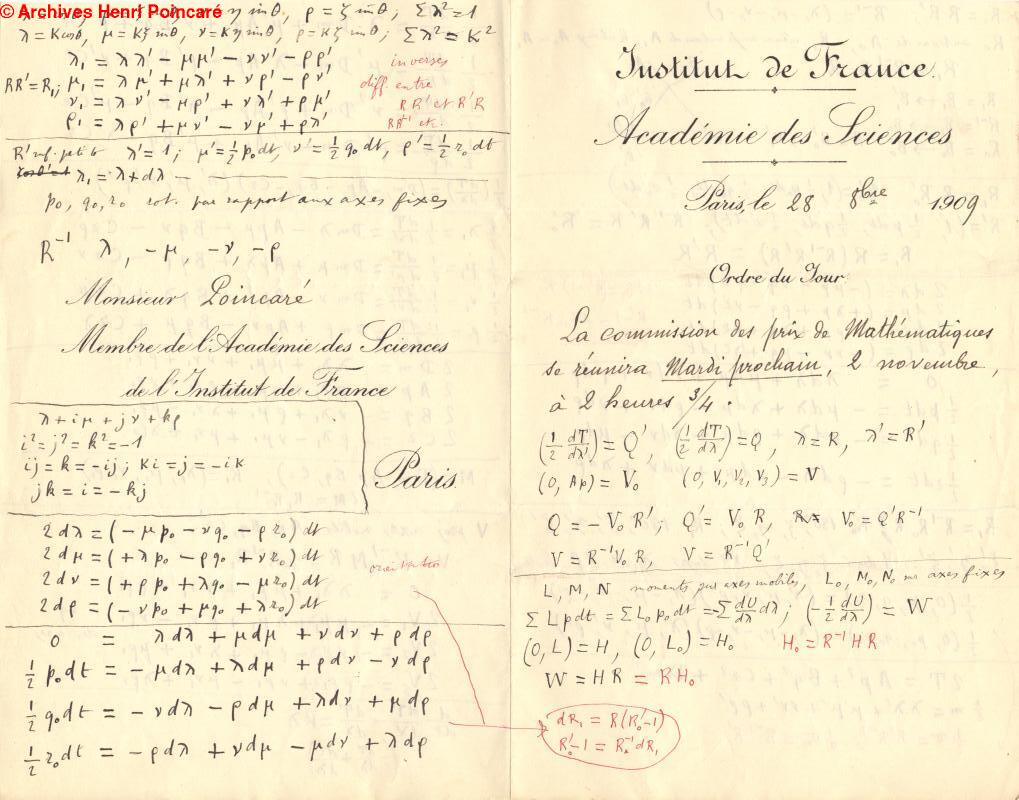 © Archives Henri Poincaré
η sin θ, ρ = ζ sin θ; Σλ² = 1
λ = K cos θ, μ = Kξ sin θ, ν = Kη sin θ, ρ = Kζ sin θ; Σλ² = K²
λ₁ = λλ' − μμ' − νν' − ρρ'
RR' = R₁; μ₁ = λμ' + μλ' + νρ' − ρν'
ν₁ = λν' − μρ' + νλ' + ρμ'
ρ₁ = λρ' + μν' − νμ' + ρλ'
inverses
diff. entre
RR' et R'R
RR⁻¹ etc.
R' inf. petite λ' = 1; μ' = ½ p₀dt, ν' = ½ q₀dt, ρ' = ½ r₀dt
λ₁ = λ + dλ
p₀, q₀, r₀ rot. par rapport aux axes fixes
R⁻¹ λ, −μ, −ν, −ρ
Monsieur Poincaré
Membre de l'Académie des Sciences
de l'Institut de France
Paris
λ + iμ + jν + kρ
i² = j² = k² = −1
ij = k = −ij; Ki = j = −iK
jk = i = −kj
2dλ = (−μp₀ − νq₀ − ρr₀)dt
2dμ = (+λp₀ − ρq₀ + νr₀)dt
2dν = (+ρp₀ + λq₀ − μr₀)dt
2dρ = (−νp₀ + μq₀ + λr₀)dt
orientation
0 = λdλ + μdμ + νdν + ρdρ
½ p₀dt = −μdλ + λdμ + ρdν − νdρ
½ q₀dt = −νdλ − ρdμ + λdν + μdρ
½ r₀dt = −ρdλ + νdμ − μdν + λdρ
Institut de France.
Académie des Sciences
Paris, le 28 8bre 1909
Ordre du Jour:
La commission des prix de Mathématiques
se réunira Mardi prochain, 2 novembre,
à 2 heures 3/4.
(½ dT/dλ') = Q', (½ dT/dλ) = Q, λ = R, λ' = R'
(0, Ap) = V₀ (0, V₁, V₂, V₃) = V
Q = −V₀R'; Q' = V₀R, V₀ = Q'R⁻¹
V = R⁻¹V₀R, V = R⁻¹Q'
L, M, N moments par axes mobiles, L₀, M₀, N₀ axes fixes
ΣLpdt = ΣL₀p₀dt = Σ dU/dλ dλ; (−½ dU/dλ) = W
(0, L) = H, (0, L₀) = H₀ H₀ = R⁻¹HR
W = HR = RH₀
dR₁ = R(R'₀−1)
R'₀−1 = R₀⁻¹dR₁